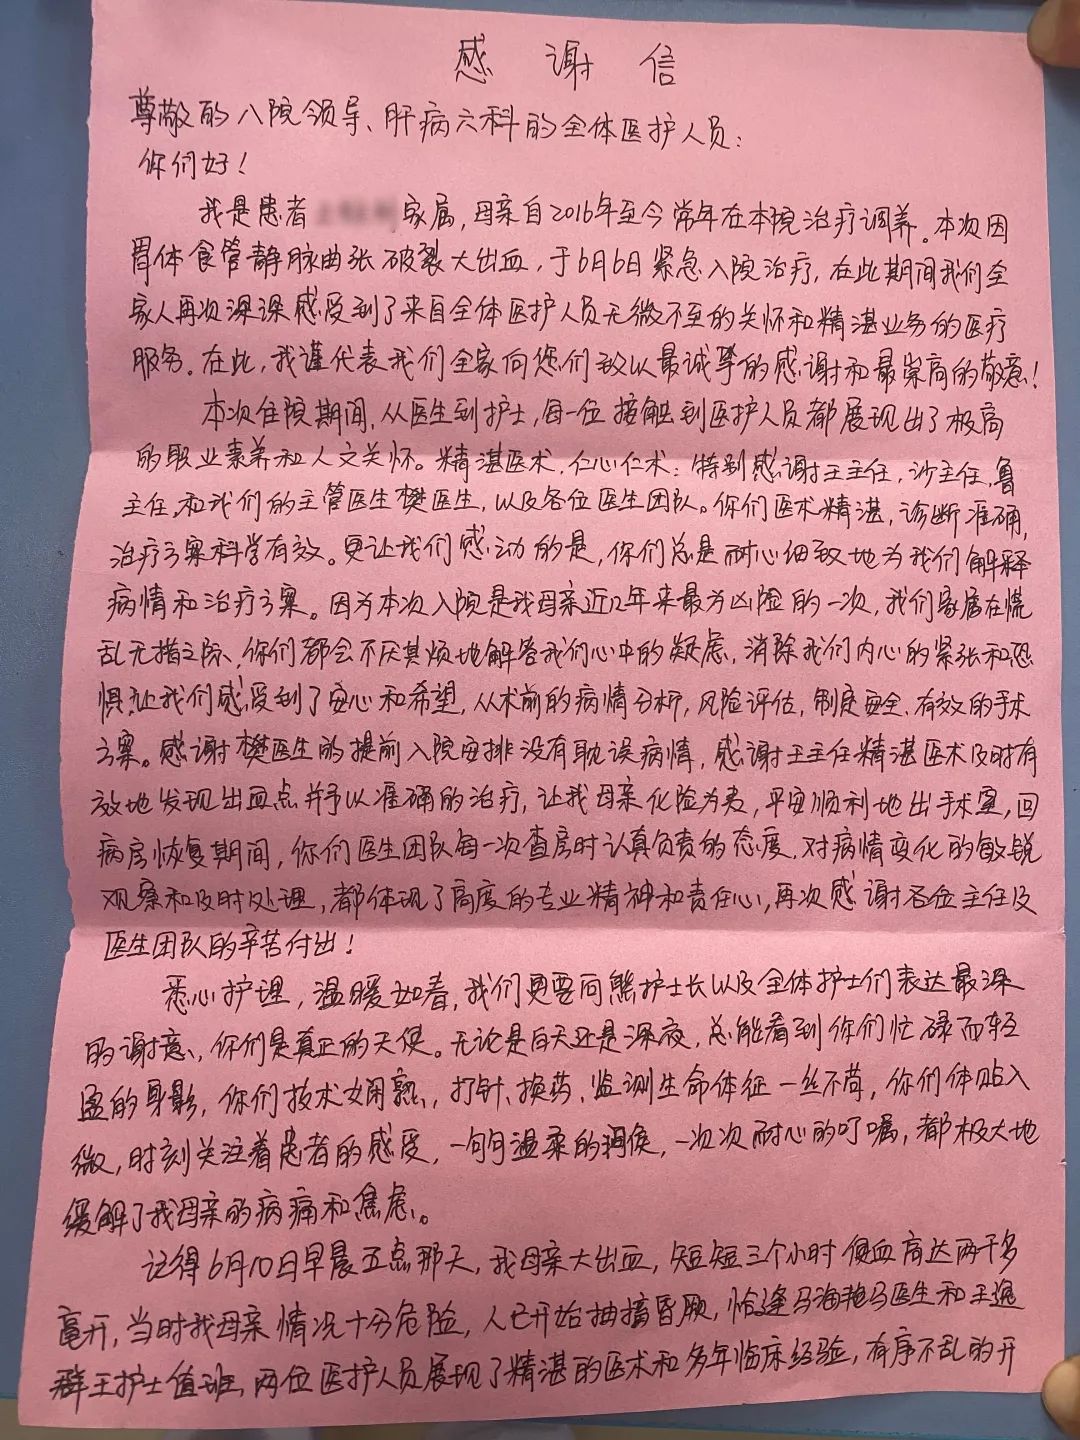 感谢信
尊敬的八院领导、肝病六科的全体医护人员:
你们好!
我是患者 家属,母亲自2016年至今常年在本院治疗调养。本次因
胃体食管静脉曲张破裂大出血,于6月6日紧急入院治疗,在此期间我们全
家人再次深深感受到了来自全体医护人员无微不至的关怀和精湛业务的医疗
服务。在此,我谨代表我们全家向您们致以最诚挚的感谢和最崇高的敬意!
本次住院期间,从医生到护士,每一位接触到医护人员都展现出了极高
的职业素养和人文关怀。精湛医术,仁心仁术:特别感谢王主任,沙主任,鲁
主任,和我们的主管医生樊医生,以及各位医生团队。你们医术精湛,诊断准确,
治疗方案科学有效。更让我们感动的是,你们总是耐心细致地为我们解释
病情和治疗方案。因为本次入院是我母亲近几年来最为凶险的一次,我们家属在慌
乱无措之际,你们都会不厌其烦地解答我们心中的疑虑,消除我们内心的紧张和恐
惧,让我们感受到了安心和希望,从术前的病情分析,风险评估,制定安全、有效的手术
方案。感谢樊医生的提前入院安排没有耽误病情,感谢王主任精湛医术及时有
效地发现出血点并予以准确的治疗,让我母亲化险为夷,平安顺利地出手术室,回
病房恢复期间,你们医生团队每一次查房时认真负责的态度,对病情变化的敏锐
观察和及时处理,都体现了高度的专业精神和责任心,再次感谢各位主任及
医生团队的辛苦付出!
悉心护理,温暖如春,我们更要向熊护士长以及全体护士们表达最深
的谢意,你们是真正的天使。无论是白天还是深夜,总能看到你们忙碌而轻
盈的身影,你们技术娴熟,打针、换药、监测生命体征一丝不苟,你们体贴入
微,时刻关注着患者的感受,一句句温柔的问候,一次次耐心的叮嘱,都极大地
缓解了我母亲的病痛和焦虑。
记得6月10日早晨五点那天,我母亲大出血,短短三个小时便血高达两千多
毫升,当时我母亲情况十分危险,人已开始抽搐昏厥,恰逢马海艳马医生和王逸
群王护士值班,两位医护人员展现了精湛的医术和多年临床经验,有序不乱的开